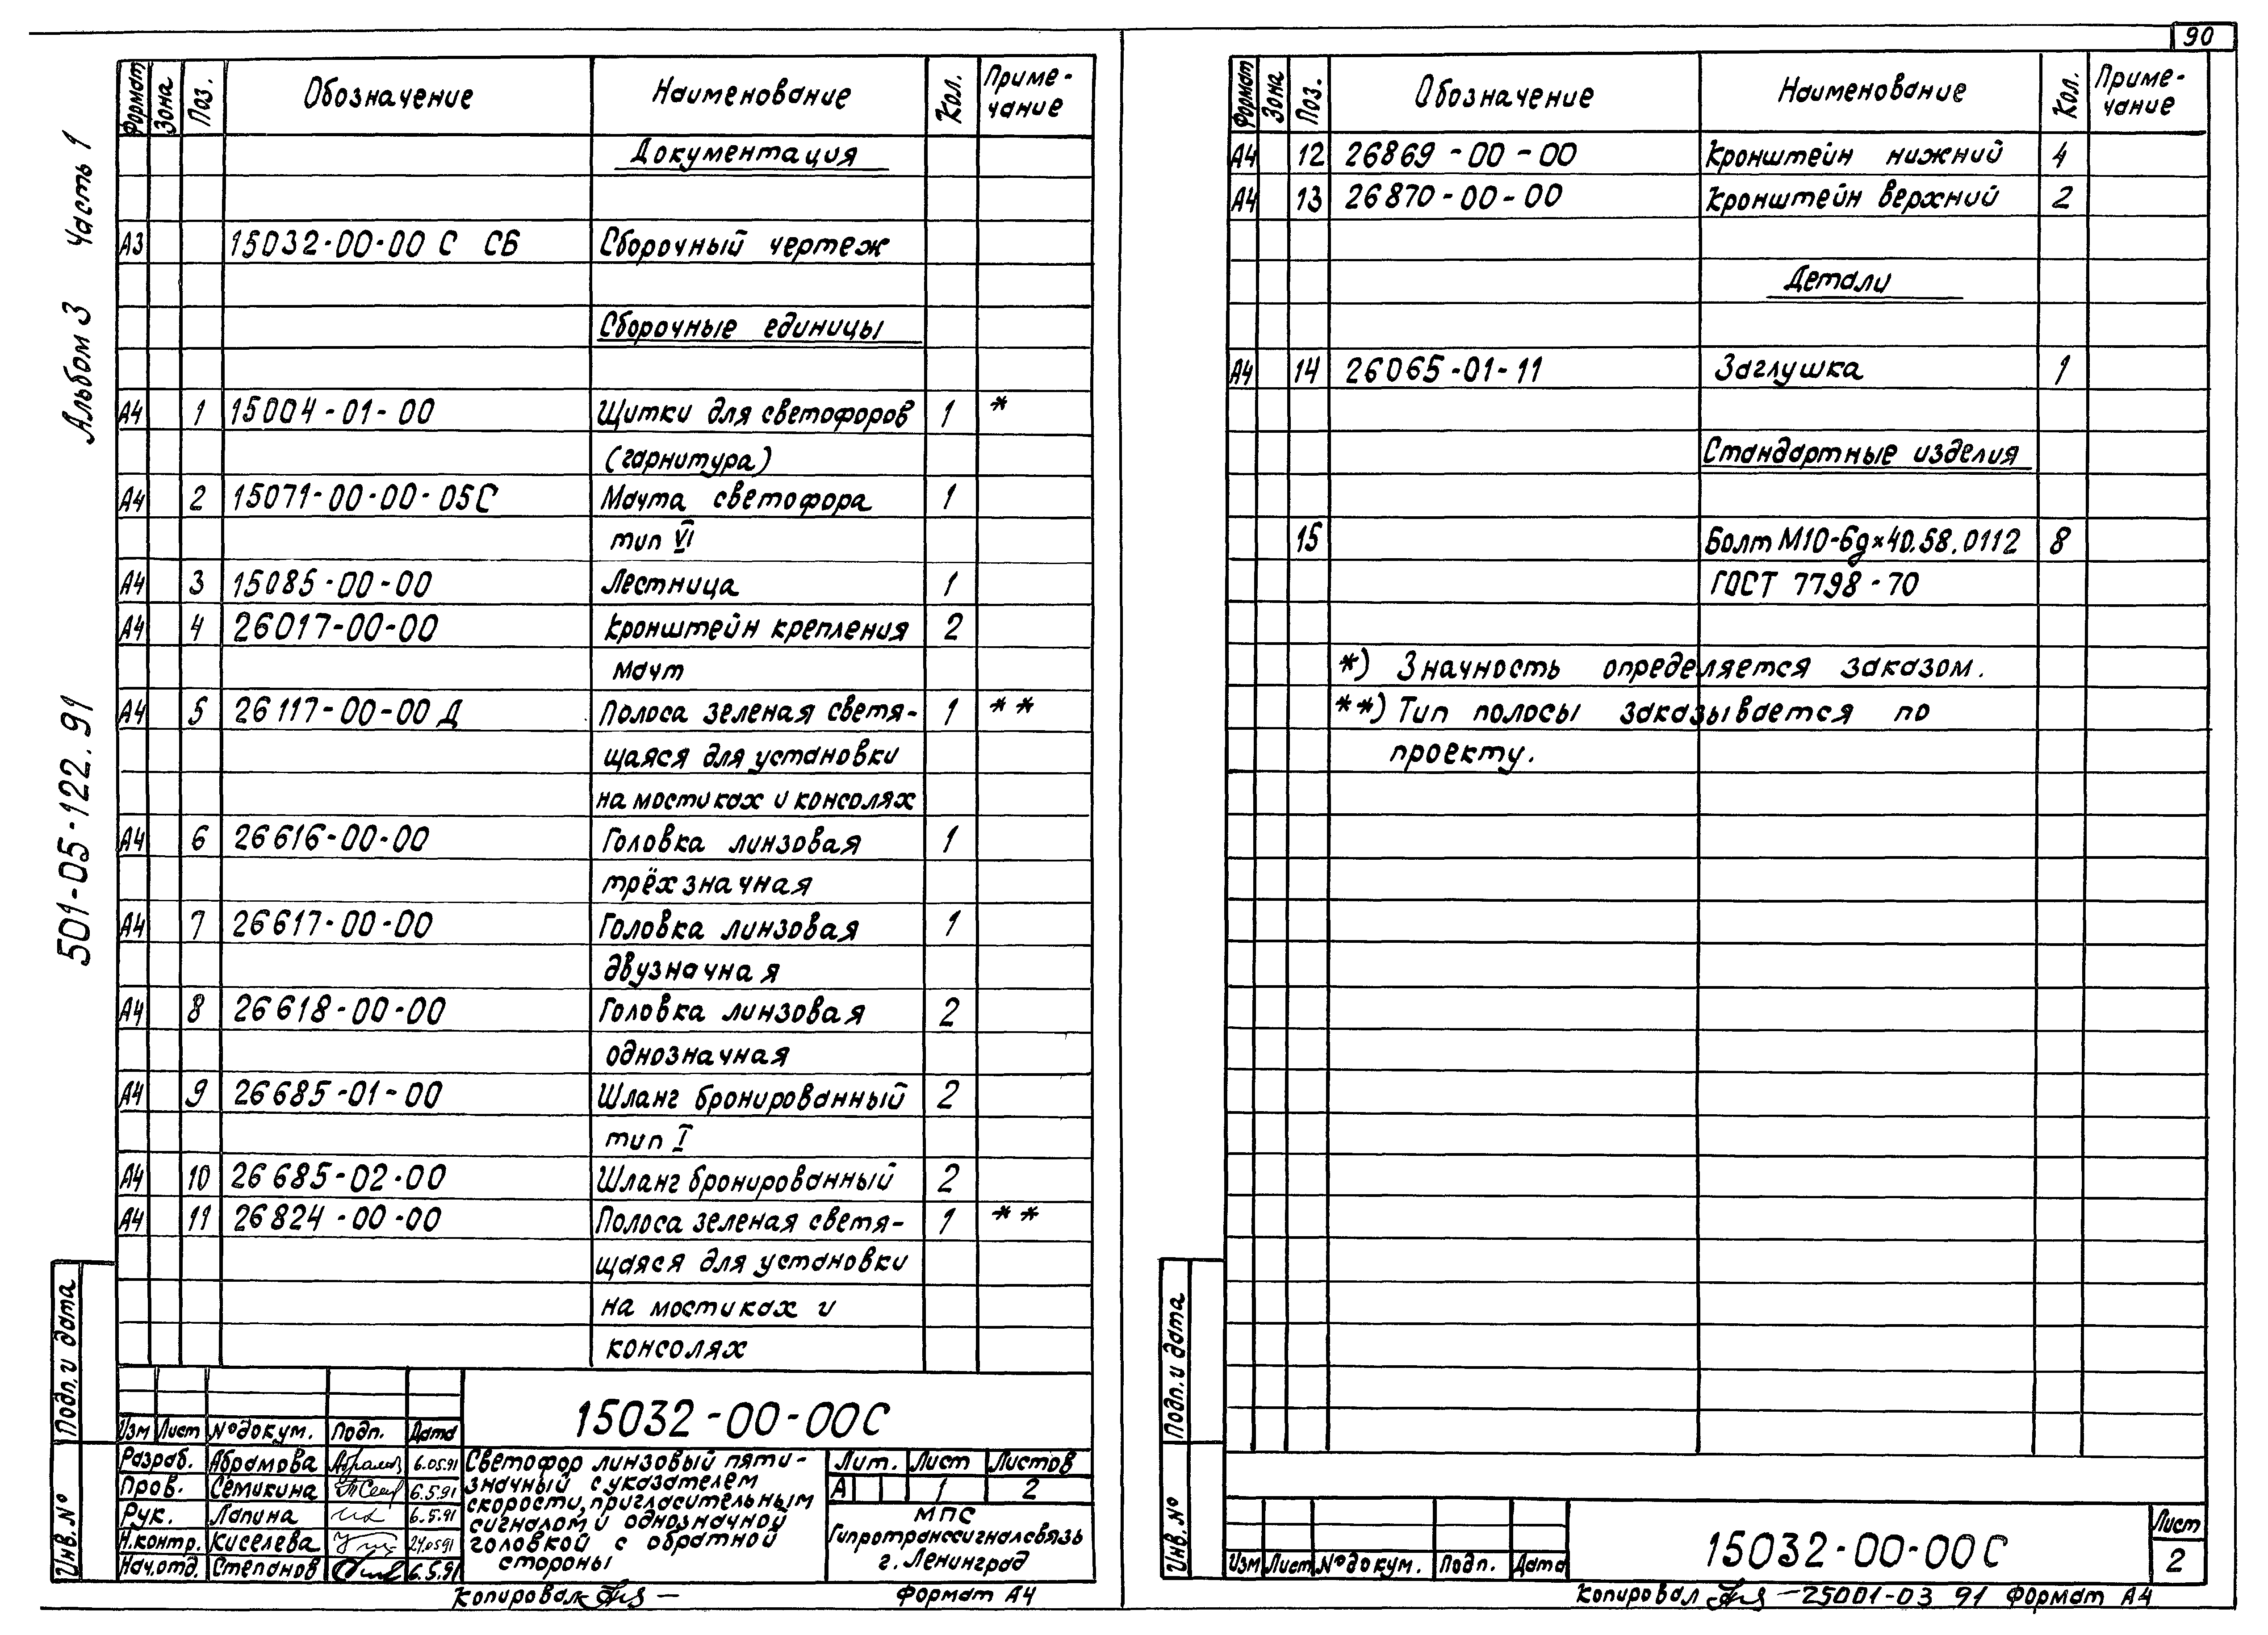 90
Альбом 3 Часть 1
501-05-122.91
Формат Зона Поз. Обозначение Наименование Кол. Приме-
чание
Документация
А3 15032-00-00 С СБ Сборочный чертеж
Сборочные единицы
А4 1 15004-01-00 Щитки для светофоров 1 *
(гарнитура)
А4 2 15071-00-00-05С Мачта светофора 1
тип VI
А4 3 15085-00-00 Лестница 1
А4 4 26017-00-00 Кронштейн крепления 2
мачт
А4 5 26117-00-00 Д Полоса зеленая светя- 1 **
щаяся для установки
на мостиках и консолях
А4 6 26616-00-00 Головка линзовая 1
трёхзначная
А4 7 26617-00-00 Головка линзовая 1
двузначная
А4 8 26618-00-00 Головка линзовая 2
однозначная
А4 9 26685-01-00 Шланг бронированный 2
тип I
А4 10 26685-02-00 Шланг бронированный 2
А4 11 26824-00-00 Полоса зеленая светя- 1 **
щаяся для установки
на мостиках и
консолях
Подп. и дата
Инв. №
15032-00-00С
Изм Лист № докум. Подп. Дата
Разраб. Абрамова 6.05.91
Пров. Семикина 6.5.91
Рук. Лапина 6.5.91
Н.контр. Киселева 24.05.91
Нач.отд. Степанов 6.5.91
Светофор линзовый пяти-
значный с указателем
скорости, пригласительным
сигналом и однозначной
головкой с обратной
стороны
Лит. Лист Листов
А 1 2
МПС
Гипротранссигналсвязь
г. Ленинград
Копировал
Формат А4
Формат Зона Поз. Обозначение Наименование Кол. Приме-
чание
А4 12 26869-00-00 Кронштейн нижний 4
А4 13 26870-00-00 Кронштейн верхний 2
Детали
А4 14 26065-01-11 Заглушка 1
Стандартные изделия
15 Болт М10-6g×40.58.0112 8
ГОСТ 7798-70
*) Значность определяется заказом.
**) Тип полосы заказывается по
проекту.
Подп. и дата
Инв. №
Изм Лист № докум. Подп. Дата
15032-00-00С
Лист
2
Копировал — 25001-03 91 Формат А4